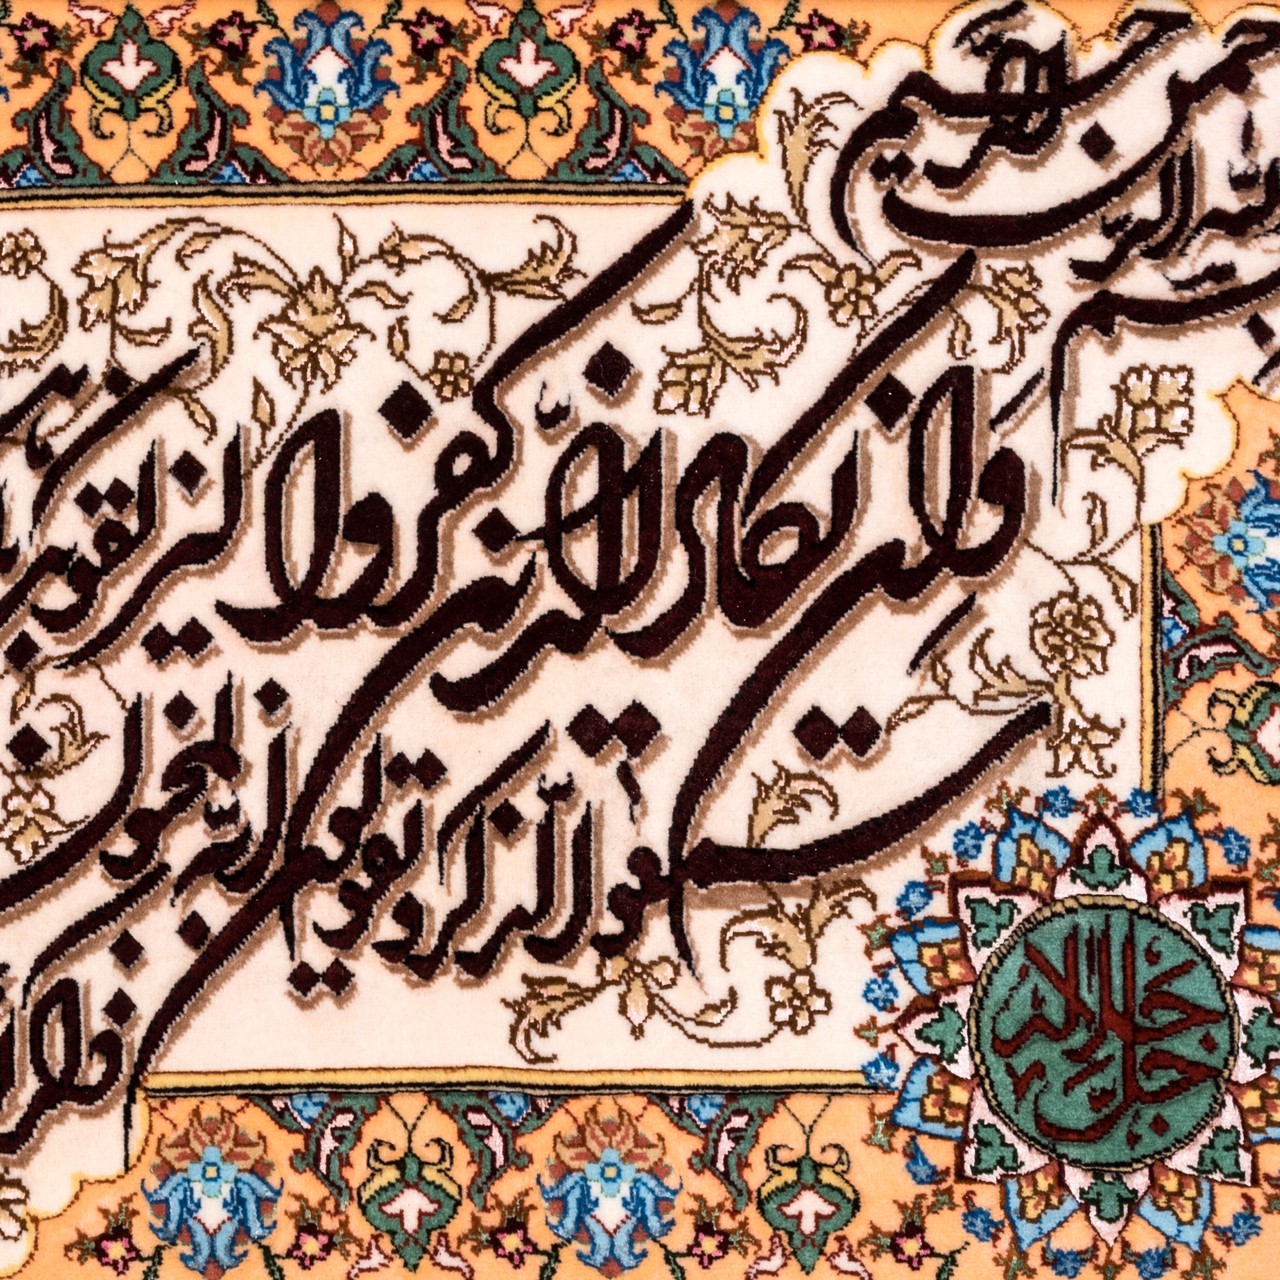 بسم الله الرحمن الرحیم
وَاِن یکاد الذین کفروا لیزلقونک
سمعوا الذکر و یقولون انه لمجنون
جل جلاله